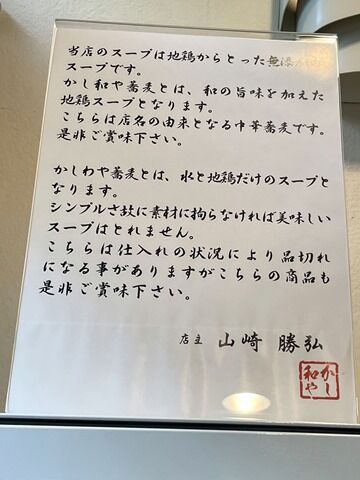 当店のスープは地鶏からとった無添加の
スープです。
かし和や蕎麦とは、和の旨味を加えた
地鶏スープとなります。
こちらは店名の由来となる中華蕎麦です。
是非ご賞味下さい。
かしわや蕎麦とは、水と地鶏だけのスープと
なります。
シンプルさ故に素材に拘らなければ美味しい
スープはとれません。
こちらは仕入れの状況により品切れ
になる事がありますがこちらの商品も
是非ご賞味下さい。
店主 山崎 勝弘
かし
和や